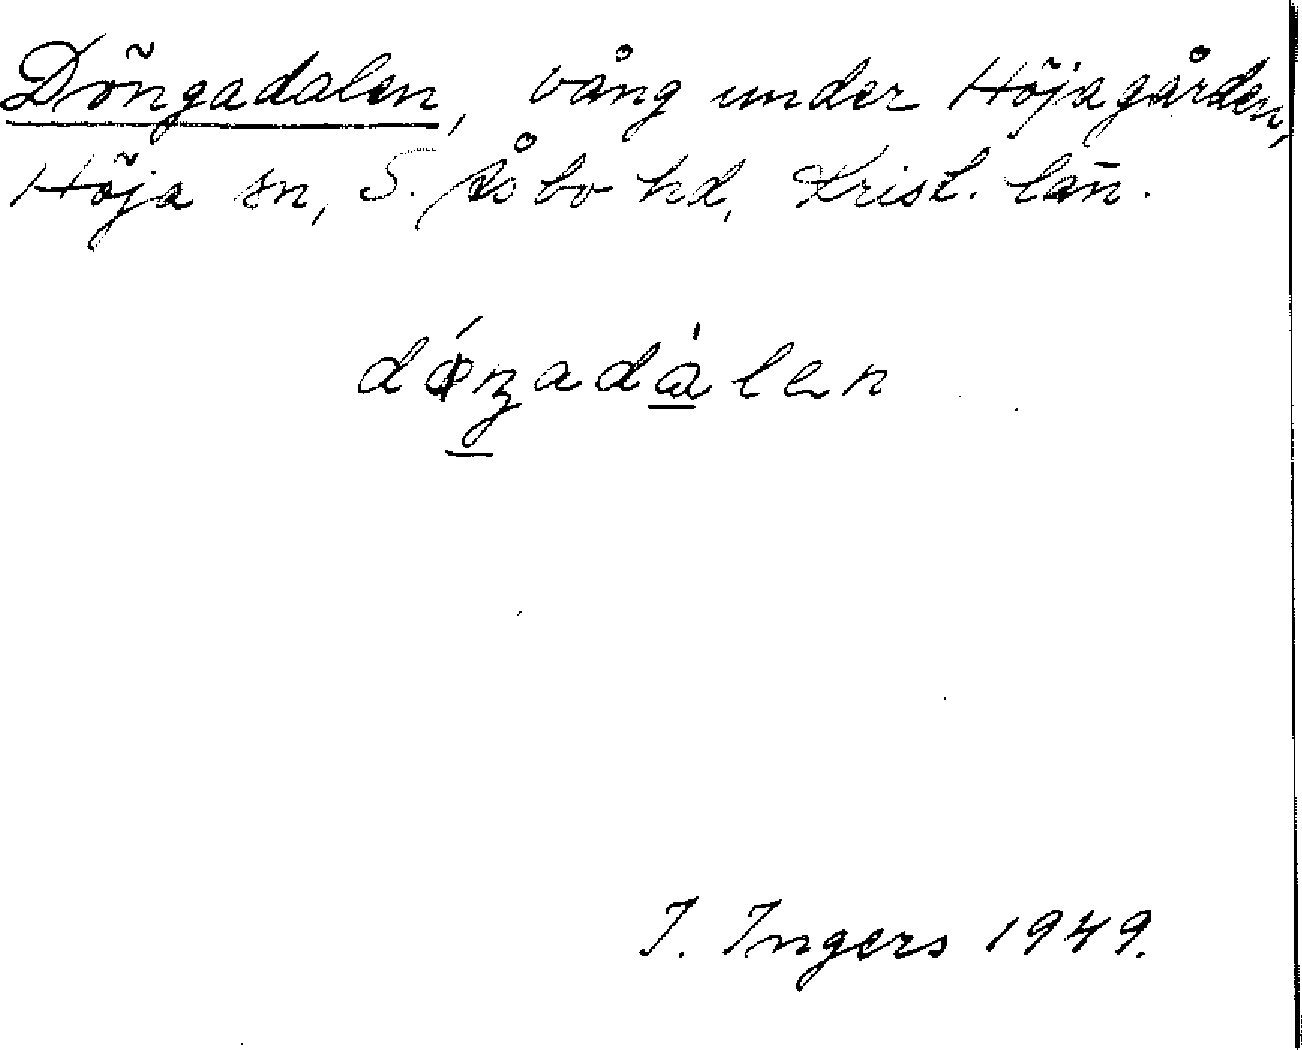 Döngadalen, vång under Höjagården,
Höja sn, S. Åsbo hd, Krist. län.
dǿŋadàlen
I. Ingers 1949.